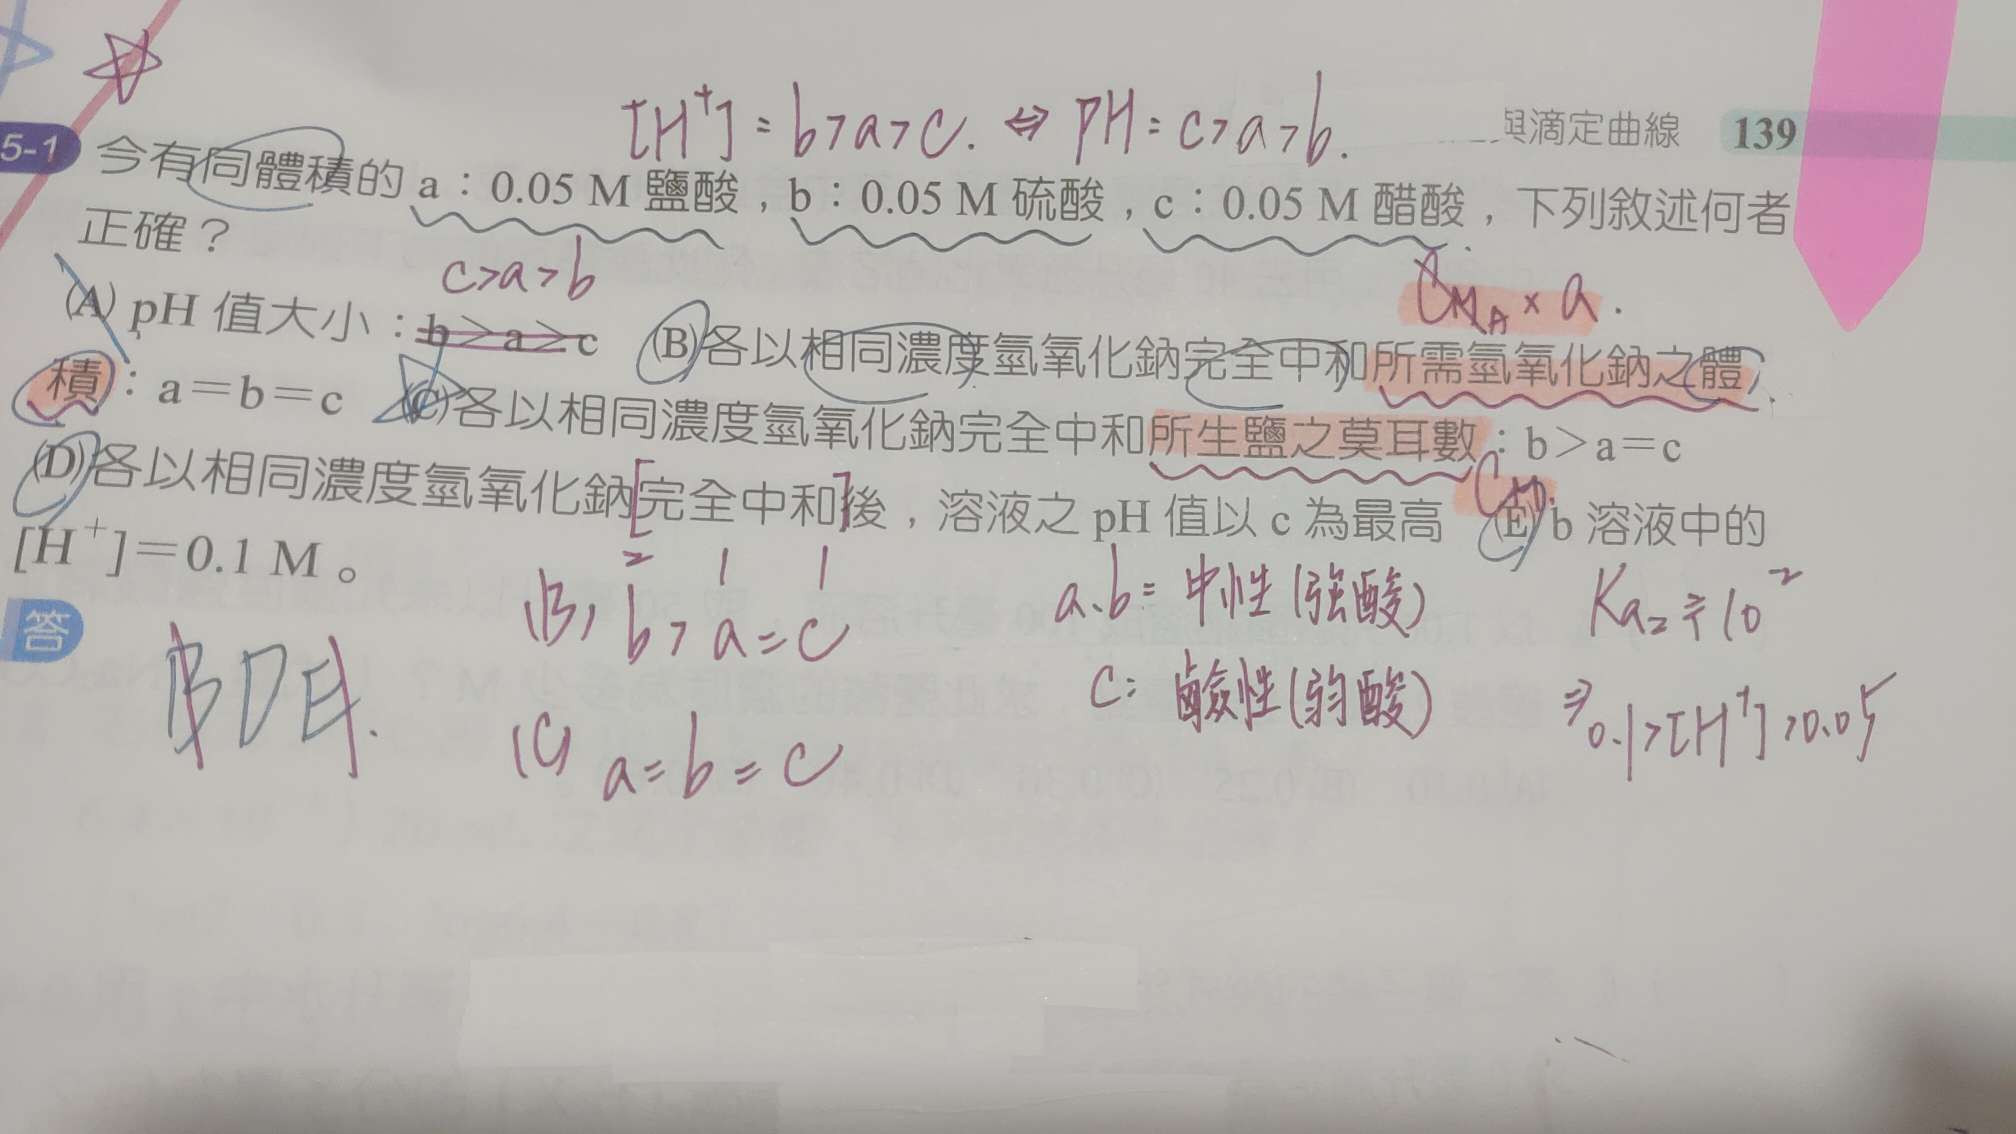 [H⁺] = b>a>c. ⇔ PH = c>a>b.
與滴定曲線 139
5-1 今有同體積的 a：0.05 M 鹽酸，b：0.05 M 硫酸，c：0.05 M 醋酸，下列敘述何者
正確？
c>a>b
C_M_A × a.
(A) pH 值大小：b＞a＞c (B)各以相同濃度氫氧化鈉完全中和所需氫氧化鈉之體
積：a＝b＝c (C)各以相同濃度氫氧化鈉完全中和所生鹽之莫耳數：b＞a＝c
(D)各以相同濃度氫氧化鈉[完全中和]後，溶液之 pH 值以 c 為最高 (E) b 溶液中的
[H⁺]＝0.1 M。
2 1 1
(B) b > a = c
a、b = 中性 (強酸)
Ka₂ ≑ 10⁻²
答 BDE.
c: 鹼性 (弱酸)
⇒ 0.1>[H⁺]>0.05
(C) a = b = c